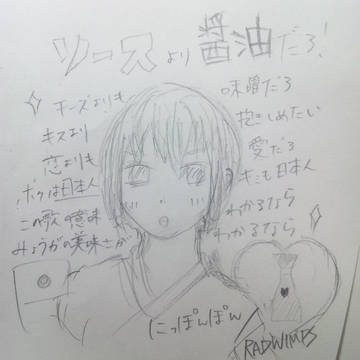 ソースより醤油だろ!
チーズよりも
キスより
恋よりも
ボクは日本人
この歌の意味
みょうがの美味さが
味噌だろ
抱きしめたい
愛だろ
キミも日本人
わかるなら
わかるなら
にっぽんぽん
RADWIMPS